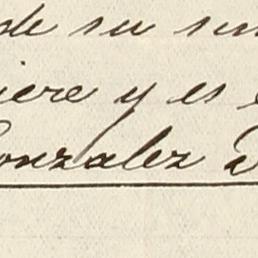 de su
iere y es
Gonzalez D